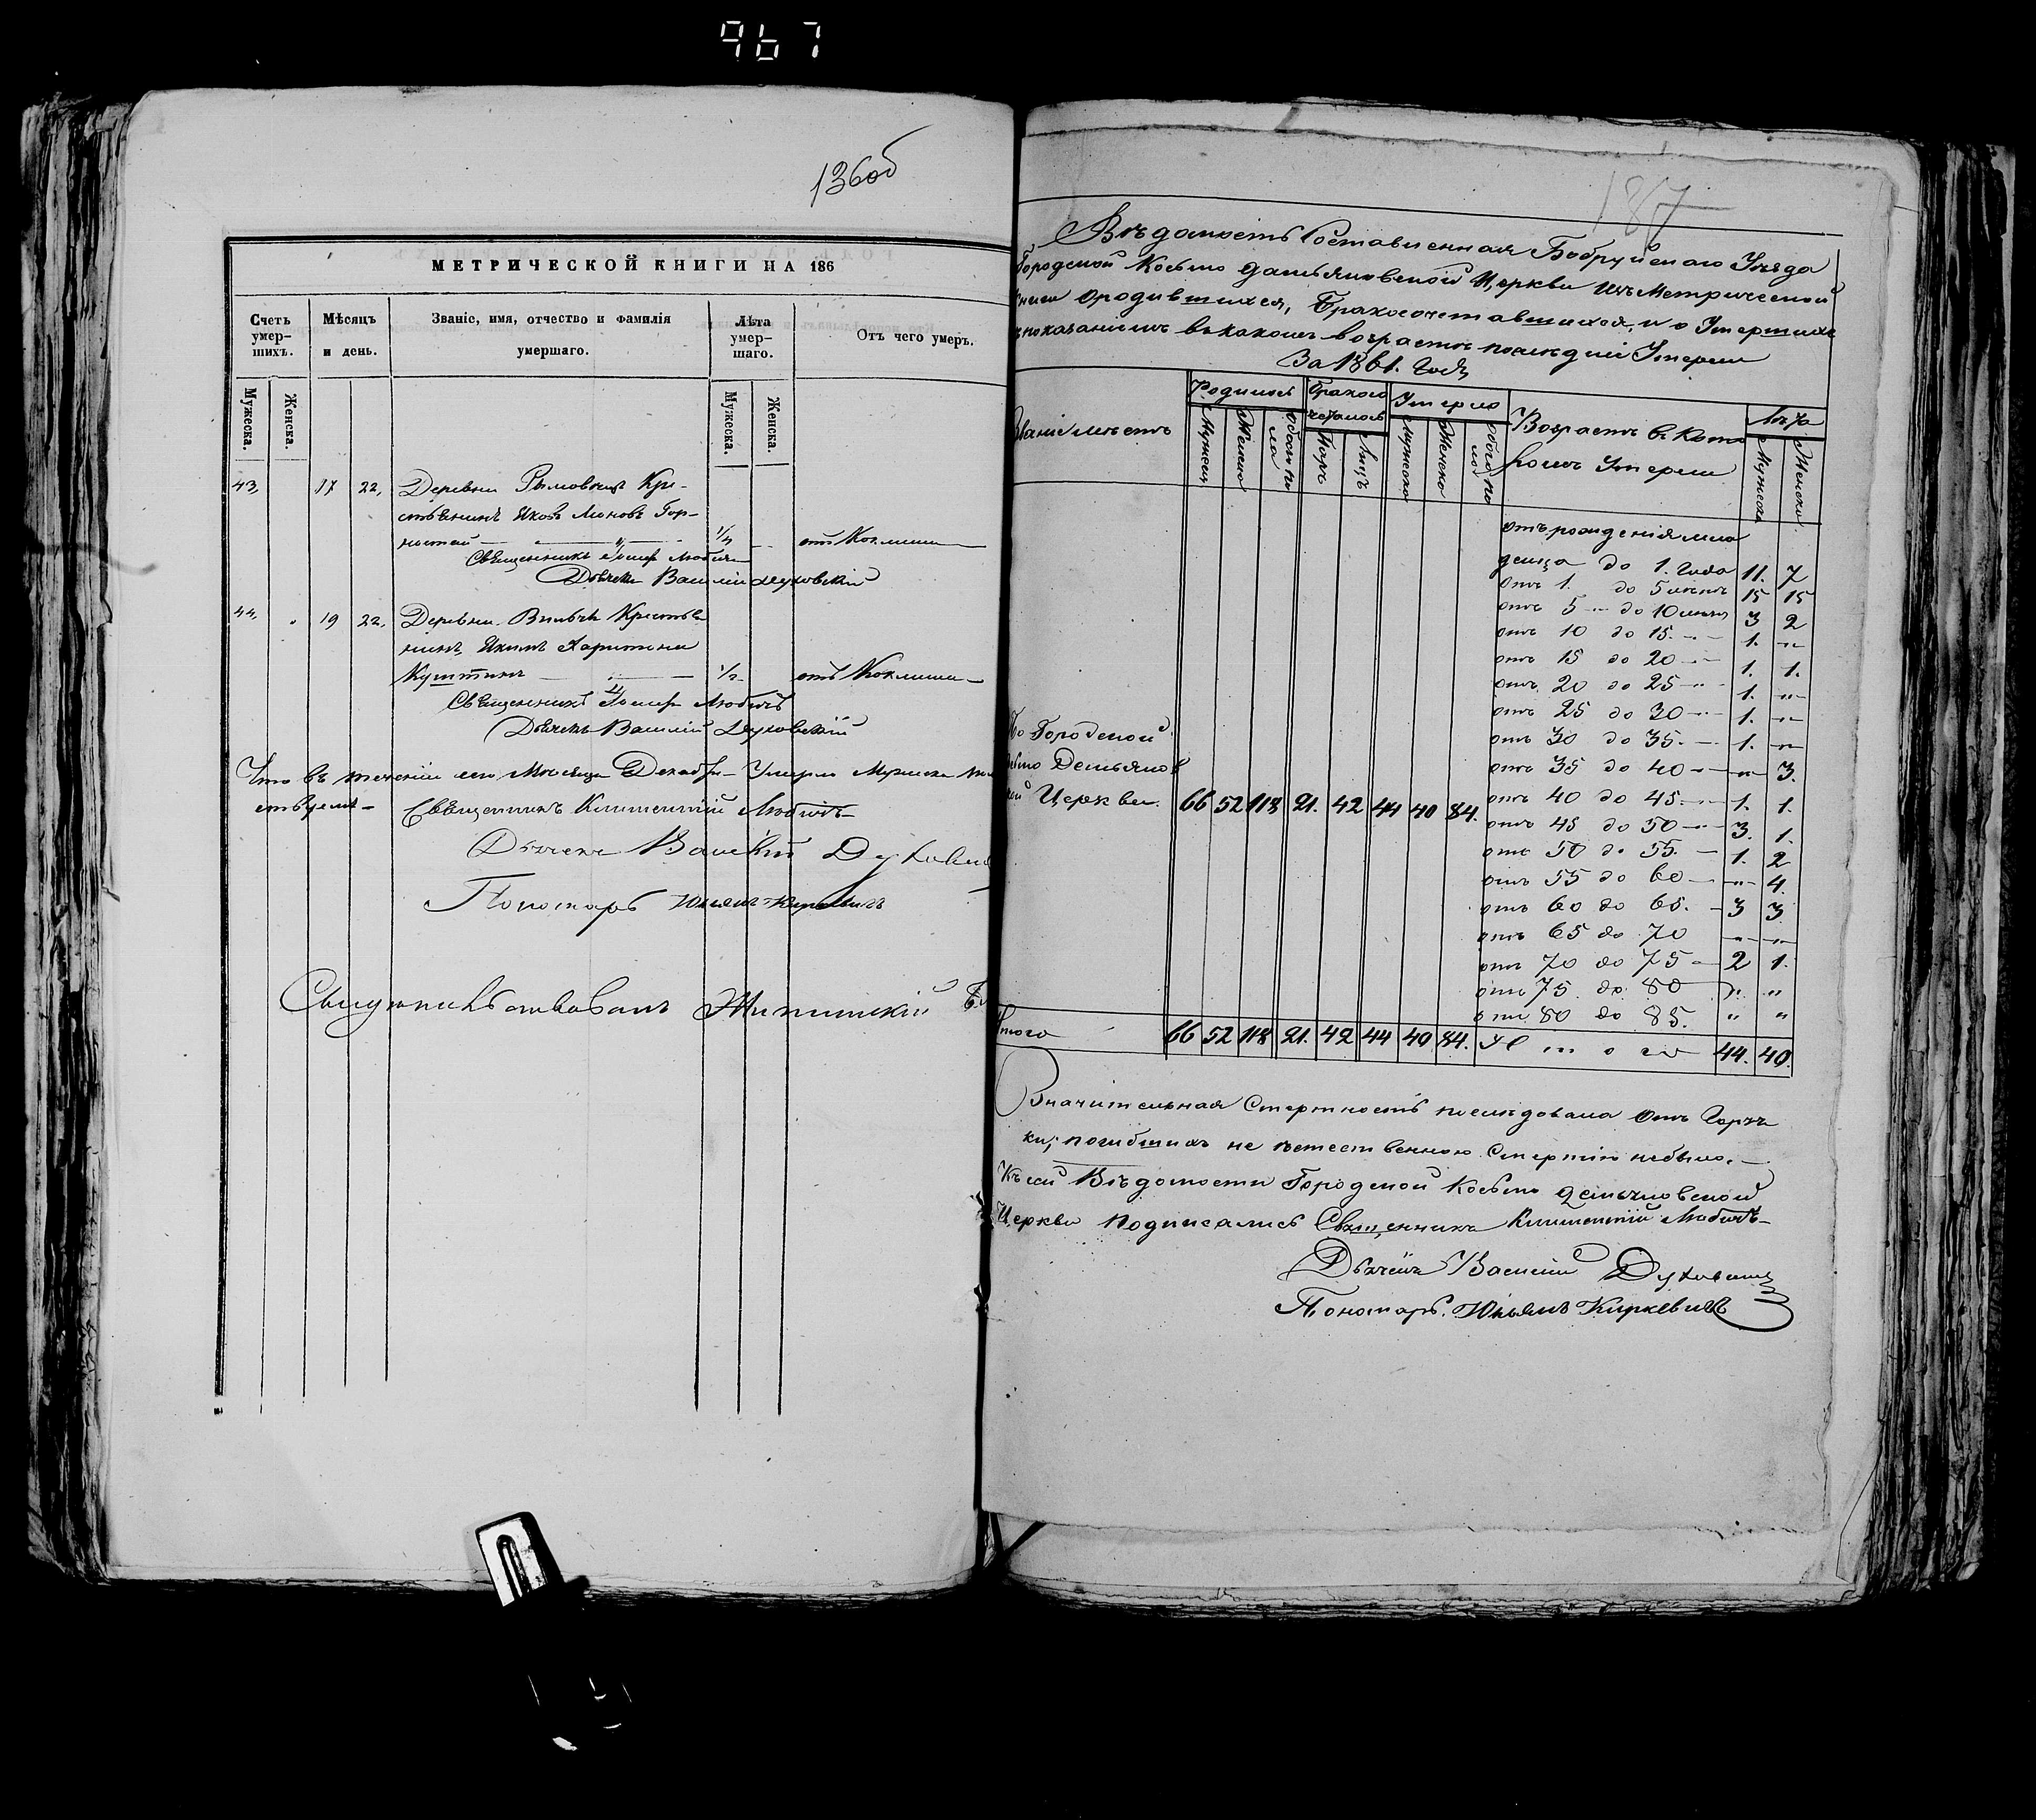 967
136об
МЕТРИЧЕСКОЙ КНИГИ НА 186
Счетъ умер-шихъ.
Мѣсяцъ и день.
Званіе, имя, отчество и фамилія умершаго.
Лѣта умер-шаго.
Отъ чего умеръ.
Мужеска. Женска. Мужеска. Женска.
43, 17 22, Деревни Кре-
стьянинъ Яковъ Гор-
ностай 1/2 отъ Коклюша
Священникъ
Дьячекъ Василій Духовскій
44, " 19 22, Деревни Крестья
нинъ Якимъ Харитона
1/2 отъ Коклюша
Священникъ
Дьячекъ Василій Духовскій
Что въ теченіи сего Мѣсяца Декабря Умерло Мужеска
Священникъ Климентій
Дьячекъ Василій Духовскій
Пономарь Юльянъ Киркевичъ
Свидѣтельствовалъ
187
Вѣдомость Составленная Бобруйскаго Уѣзда
Городской Косьмо Даміяновской Церкви изъ Метрической
книги о родившихся, Бракосочетавшихся, и о Умершихъ
показаніемъ въ какомъ возрастѣ послѣдніе Умерли
За 1861. Годъ
Званіе мѣстъ
Родилось
Бракосочеталось
Умерло
Возрастъ въ Кото
ромъ Умерли
Лѣта
Мужеска Женска Обоего пола Паръ Лицъ Мужеска Женска Обоего пола Мужеска Женска
отъ рожденія мла
денца до 1. Года 11. 7
отъ 1 до 5 лѣтъ 15 15
отъ 5 до 10 лѣтъ 3 2
отъ 10 до 15. 1. "
отъ 15 до 20 1. 1.
отъ 20 до 25 1. "
отъ 25 до 30 1. "
отъ 30 до 35. 1. "
отъ 35 до 40 " 3.
отъ 40 до 45. 1. 1.
отъ 45 до 50 3. 1.
отъ 50 до 55. 1. 2
отъ 55 до 60 " 4.
отъ 60 до 65. 3 3
отъ 65 до 70 " "
отъ 70 до 75 2 1.
отъ 75 до 80 " "
отъ 80 до 85. " "
По Городской
Косьмо Демьянов
ской Церкви. 66 52 118 21. 42 44 40 84.
Итого 66 52 118 21. 42 44 40 84. Итого 44. 40.
Значительная Смертность послѣдовала отъ Горяч
ки, погибшихъ не естественною Смертію небыло.
Къ сей Вѣдомости Городской Косьмо Демьяновской
Церкви подписались Священникъ Климентій
Дьячекъ Василій Духовскій
Пономарь Юльянъ Киркевичъ